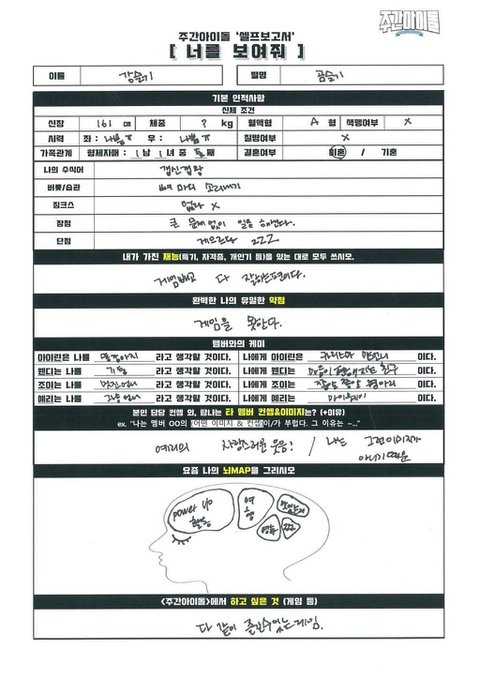 주간아이돌
주간아이돌 '셀프보고서'
[ 너를 보여줘 ]
이름 강슬기 별명 곰슬기
기본 인적사항
신체 조건
신장 161 cm 체중 ? kg 혈액형 A 형 색맹여부 X
시력 좌 : 나쁨ㅠ 우 : 나쁨ㅠ 질병여부 X
가족관계 형제자매 : 1남 1녀 중 둘째 결혼여부 미혼 / 기혼
나의 수식어 갭신갭왕
버릇/습관 뼈 마디 소리내기
징크스 없다 X
장점 큰 문제없이 일을 해낸다.
단점 게으르다 zzz
내가 가진 재능(특기, 자격증, 개인기 등)을 있는 대로 모두 쓰시오.
게임빼고 다 잘하는편이다.
완벽한 나의 유일한 약점
게임을 못한다.
멤버와의 케미
아이린은 나를 라고 생각할 것이다. 나에게 아이린은 이다.
웬디는 나를 기둥 라고 생각할 것이다. 나에게 웬디는 친구 이다.
조이는 나를 라고 생각할 것이다. 나에게 조이는 병아리 이다.
예리는 나를 라고 생각할 것이다. 나에게 예리는 마이웨이 이다.
본인 담당 컨셉 외, 탐나는 타 멤버 컨셉&이미지는? (+이유)
ex. "나는 멤버 OO의 (어떤 이미지 & 컨셉)이/가 부럽다. 그 이유는 ~..."
예리의 사랑스러운 웃음! / 나는 그런이미지가
아니기 때문
요즘 나의 뇌MAP을 그리시오
power up
활동
여
행
영화
<주간아이돌>에서 하고 싶은 것 (게임 등)
다 같이 즐길수있는게임.